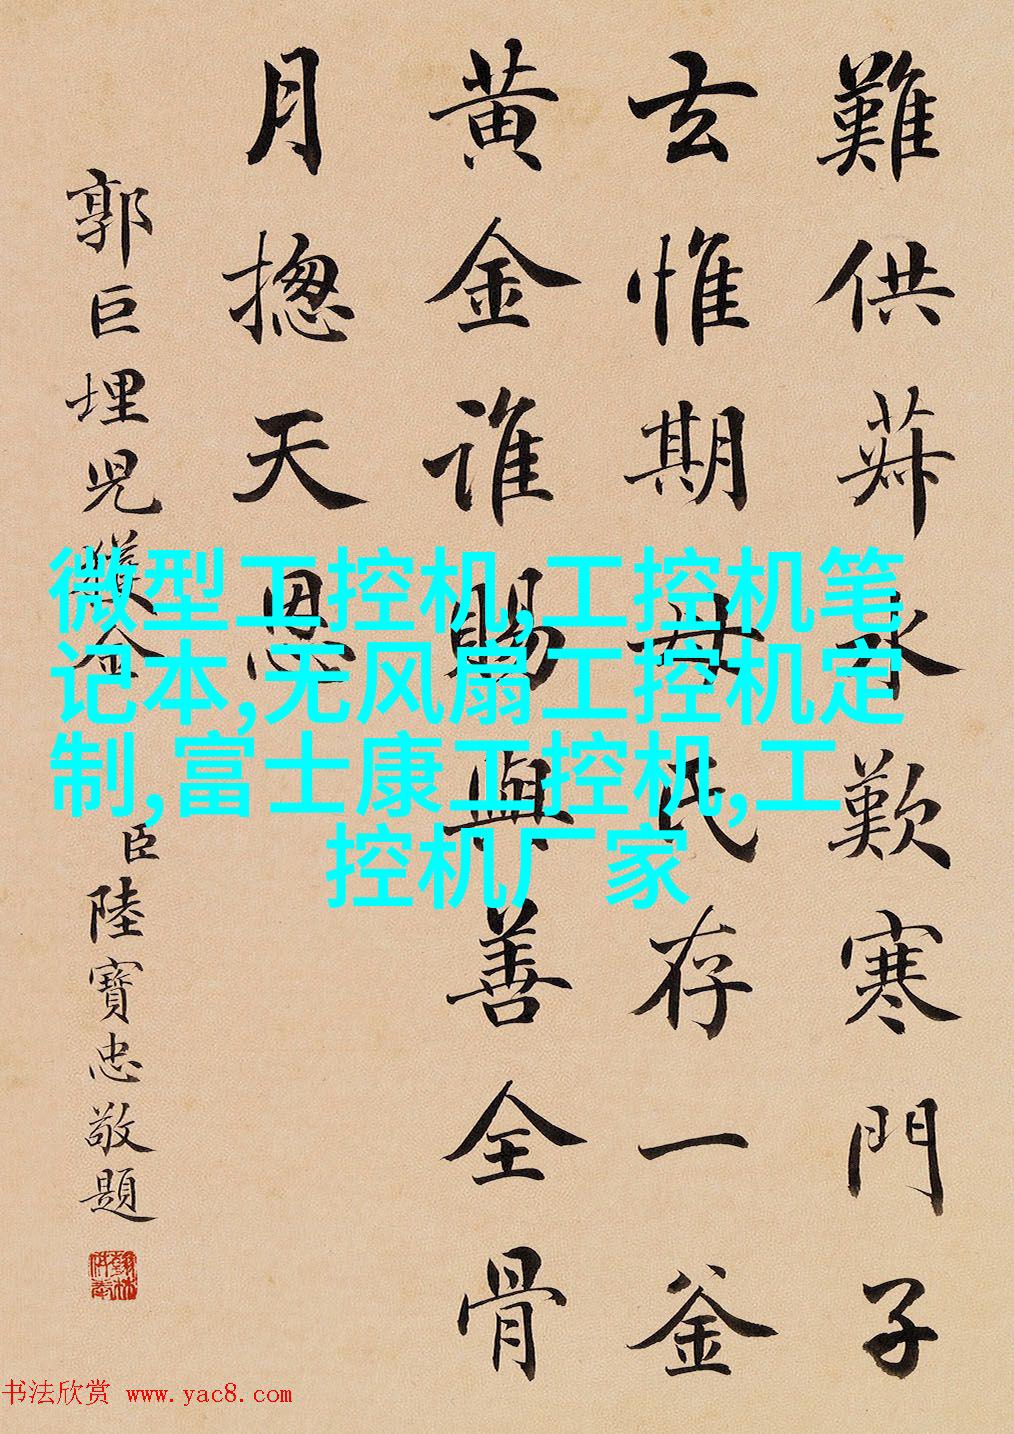 難供菽水歎寒門子
玄惟期母氏存一釜
黄金谁賜與善全骨
月揔天恩
郭巨埋児獲金
臣陸寳忠敬題
微型工控机,工控机笔
记本,无风扇工控机定
制,富士康工控机,工
控机厂家
书法欣赏 www.yac8.com